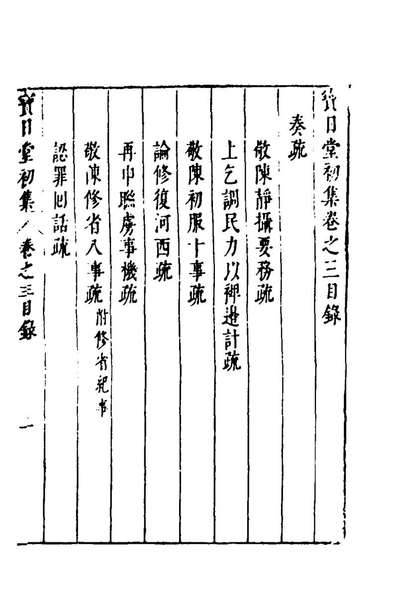 寶日堂初集卷之三目錄
奏疏
敬陳靜攝要務疏
上乞調民力以裨邊計疏
敬陳初服十事疏
論修復河西疏
再申聯虜事機疏
敬陳修省八事疏 附修省紀事
認罪回話疏
寶日堂初集 卷之三目錄 一